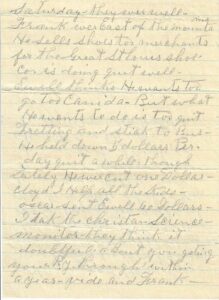 Saturday - they are well -
Frank is east of the mounta ins
He sells shoes to merchants
for the Great St Louis Shoe
Co. is doing quit well -
wants too
go too Canida - But what
He wants to do is too quit
fretting and stick to Bus
He held down 8 dollars Per -
Day quit a while though
lately He went on Dollar
Cloyd & Hall all the Kids -
oscar sent Ewell 60 Dollars -
I take the christan Science
monitor they think it
doubtful a bout ever getting
your R.F. through within
a year - vide and Frank -